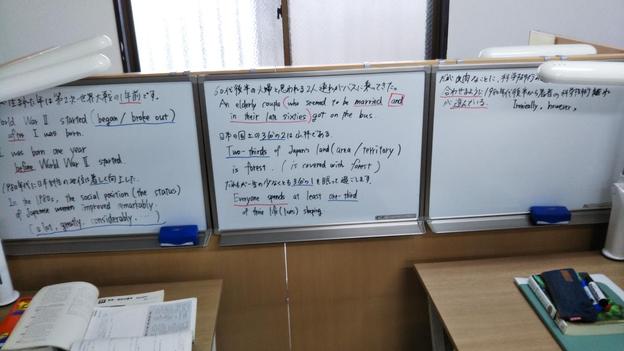 生まれた年は第2次世界大戦の1年前です。
World War II started (began / broke out)
after I was born.
I was born one year
before World War II started.
1980年代に日本女性の地位は著しく向上した。
In the 1980s, the social position (the status)
of Japanese women improved remarkably.
(a lot, greatly, considerably, ....)
60代後半の夫婦と思われる2人連れがバスに乗ってきた。
An elderly couple (who seemed to be married and
in their late sixties) got on the bus.
日本の国土の3分の2は森林である。
Two-thirds of Japan's land (area / territory)
is forest. (is covered with forest)
だれもが一生の少なくとも3分の1を眠って過ごします。
Everyone spends at least one-third
of their life (lives) sleeping.
だが、皮肉なことに、科学技術
合わせるように1980年代後半から若者の科学技術離れ
が進んでいる。
Ironically, however,